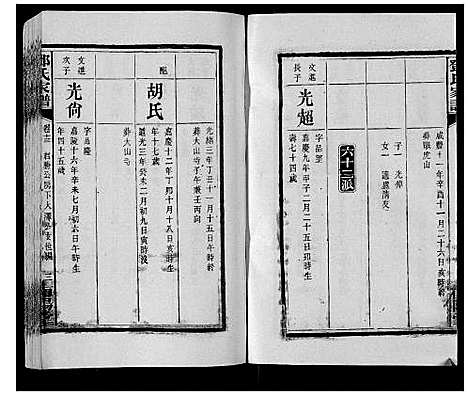 咸豐十一年辛酉十一月二十六日亥時
葬眼虎山
子一 光焯
女一 適盧清友
六十三派
文選
長子
光超
字品望
嘉慶九年甲子二月二十五日卯時生
壽七十四歲
光緒三年丁丑十一月十五日午時終
葬大山子午兼壬丙向
配
胡氏
嘉慶十二年丁卯十月十八日亥時生
年十七歲
道光三年癸未二月初九日亥時歿
葬大山
文選
次子
光尙
字品慶
嘉慶十六年辛未七月初六日午時生
年四十五歲
鄧氏家譜
卷十三